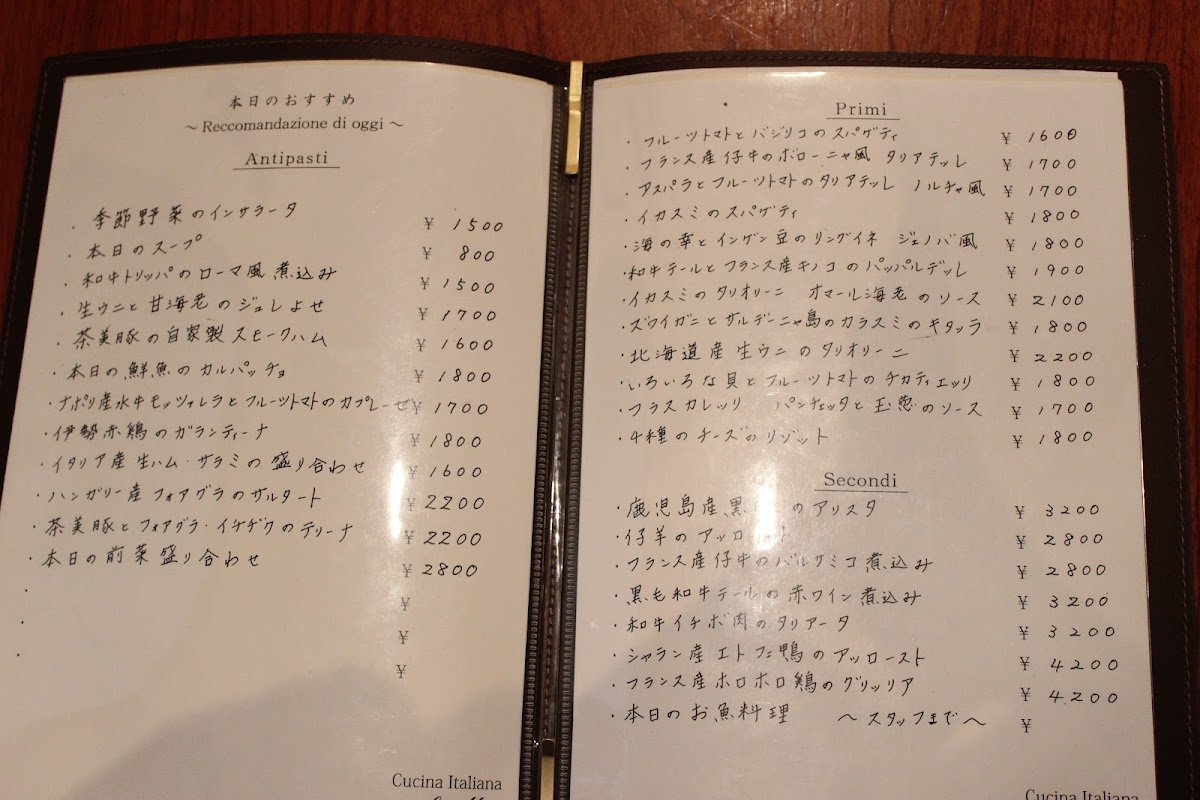 本日のおすすめ
～ Reccomandazione di oggi ～
Antipasti
・季節野菜のインサラータ ¥ 1500
・本日のスープ ¥ 800
・和牛トリッパのローマ風煮込み ¥ 1500
・生ウニと甘海老のジュレよせ ¥ 1700
・茶美豚の自家製スモークハム ¥ 1600
・本日の鮮魚のカルパッチョ ¥ 1800
・ナポリ産水牛モッツァレラとフルーツトマトのカプレーゼ ¥ 1700
・伊勢赤鶏のガランティーナ ¥ 1800
・イタリア産生ハム・サラミの盛り合わせ ¥ 1600
・ハンガリー産フォアグラのザルタート ¥ 2200
・茶美豚とフォアグラ・イチヂクのテリーナ ¥ 2200
・本日の前菜盛り合わせ ¥ 2800
・ ¥
・ ¥
・ ¥
Cucina Italiana
Primi
・フルーツトマトとバジリコのスパゲティ ¥ 1600
・フランス産仔牛のボローニャ風 タリアテッレ ¥ 1700
・アスパラとフルーツトマトのタリアテッレ ノルチャ風 ¥ 1700
・イカスミのスパゲティ ¥ 1800
・海の幸とインゲン豆のリングイネ ジェノバ風 ¥ 1800
・和牛テールとフランス産キノコのパッパルデッレ ¥ 1900
・イカスミのタリオリーニ オマール海老のソース ¥ 2100
・ズワイガニとサルデーニャ島のカラスミのキタッラ ¥ 1800
・北海道産生ウニのタリオリーニ ¥ 2200
・いろいろな貝とフルーツトマトのチカティエッリ ¥ 1800
・フラスカレッリ パンチェッタと玉葱のソース ¥ 1700
・4種のチーズのリゾット ¥ 1800
Secondi
・鹿児島産黒 のアリスタ ¥ 3200
・仔羊のアッロースト ¥ 2800
・フランス産仔牛のバルサミコ煮込み ¥ 2800
・黒毛和牛テールの赤ワイン煮込み ¥ 3200
・和牛イチボ肉のタリアータ ¥ 3200
・シャラン産エトフェ鴨のアッロースト ¥ 4200
・フランス産ホロホロ鶏のグリッリア ¥ 4200
・本日のお魚料理 ～スタッフまで～ ¥
Cucina Italiana